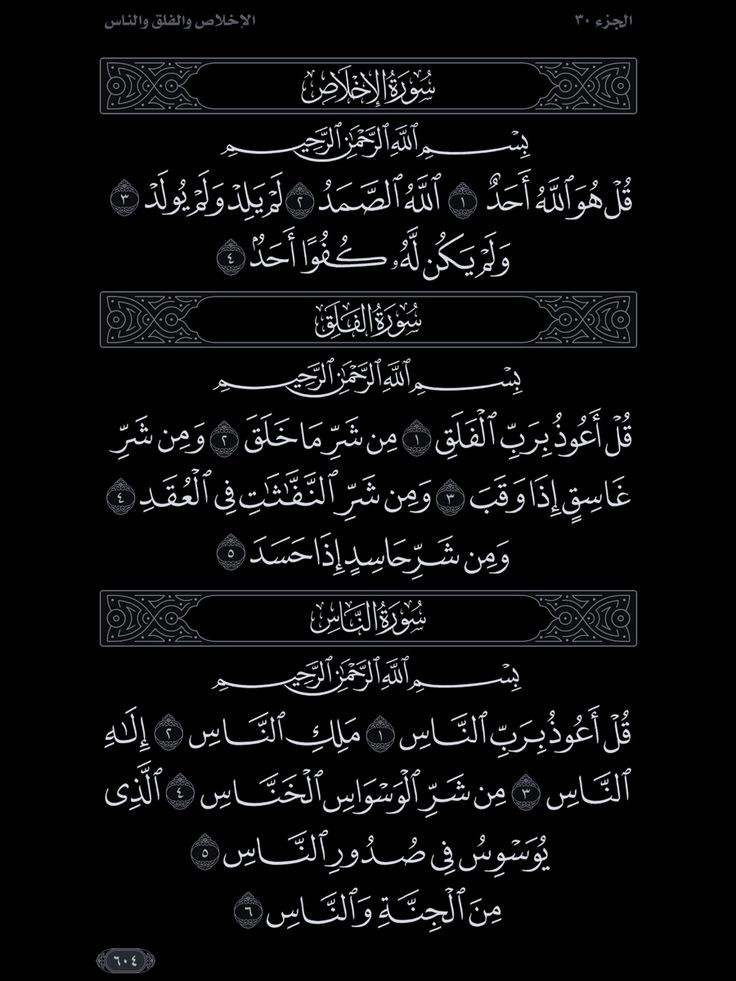 الجزء ٣٠
الإخلاص والفلق والناس
سُورَةُ الإِخْلَاصِ
بِسْمِ ٱللَّهِ ٱلرَّحْمَٰنِ ٱلرَّحِيمِ
قُلْ هُوَ ٱللَّهُ أَحَدٌ ١ ٱللَّهُ ٱلصَّمَدُ ٢ لَمْ يَلِدْ وَلَمْ يُولَدْ ٣
وَلَمْ يَكُن لَّهُۥ كُفُوًا أَحَدٌۢ ٤
سُورَةُ الفَلَقِ
بِسْمِ ٱللَّهِ ٱلرَّحْمَٰنِ ٱلرَّحِيمِ
قُلْ أَعُوذُ بِرَبِّ ٱلْفَلَقِ ١ مِن شَرِّ مَا خَلَقَ ٢ وَمِن شَرِّ
غَاسِقٍ إِذَا وَقَبَ ٣ وَمِن شَرِّ ٱلنَّفَّٰثَٰتِ فِى ٱلْعُقَدِ ٤
وَمِن شَرِّ حَاسِدٍ إِذَا حَسَدَ ٥
سُورَةُ النَّاسِ
بِسْمِ ٱللَّهِ ٱلرَّحْمَٰنِ ٱلرَّحِيمِ
قُلْ أَعُوذُ بِرَبِّ ٱلنَّاسِ ١ مَلِكِ ٱلنَّاسِ ٢ إِلَٰهِ
ٱلنَّاسِ ٣ مِن شَرِّ ٱلْوَسْوَاسِ ٱلْخَنَّاسِ ٤ ٱلَّذِى
يُوَسْوِسُ فِى صُدُورِ ٱلنَّاسِ ٥
مِنَ ٱلْجِنَّةِ وَٱلنَّاسِ ٦
٦٠٤